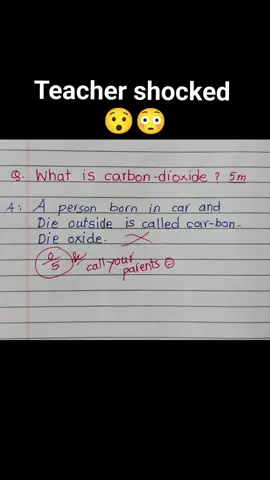 Teacher shocked
😯😳
Q. What is carbon-dioxide? 5m
A: A person born in car and
Die outside is called car-bon-
Die oxide.
0/5
call your
parents ☹